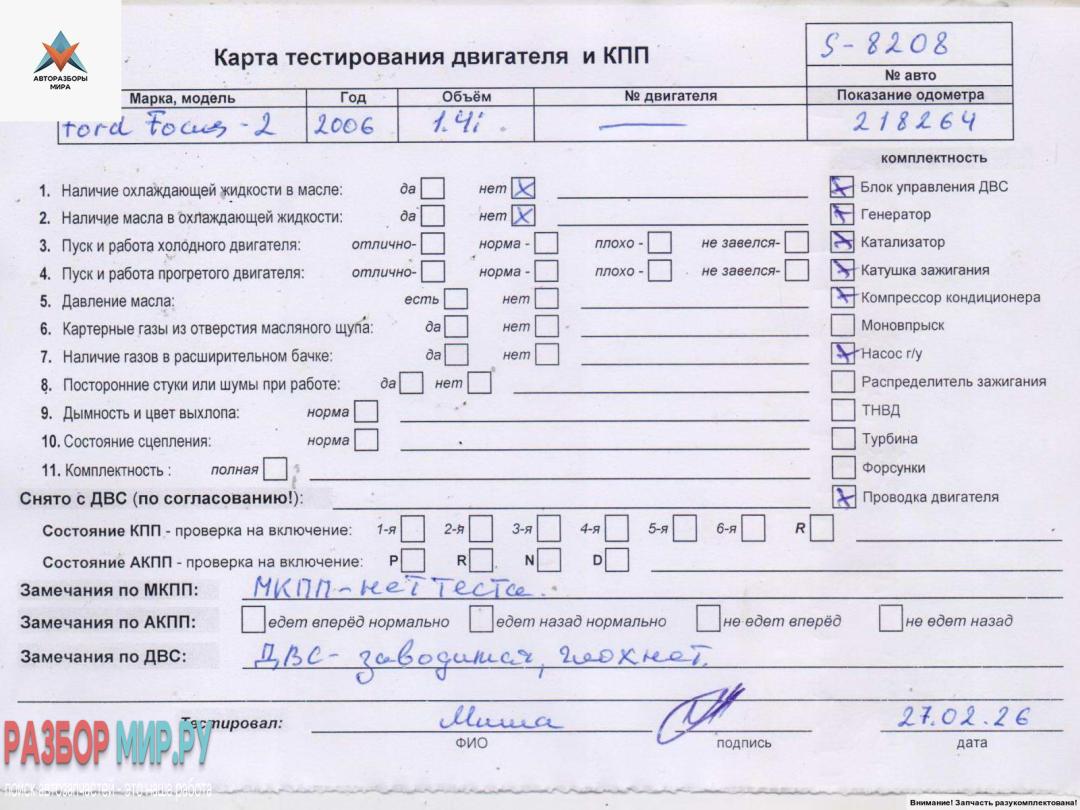 АВТОРАЗБОРЫ
МИРА
Карта тестирования двигателя и КПП
S-8208
№ авто
Марка, модель Год Объём № двигателя Показание одометра
Ford Focus - 2 2006 1.4i. — 218264
комплектность
1. Наличие охлаждающей жидкости в масле: да нет X
Блок управления ДВС
2. Наличие масла в охлаждающей жидкости: да нет X
Генератор
3. Пуск и работа холодного двигателя: отлично- норма - плохо - не завелся-
Катализатор
4. Пуск и работа прогретого двигателя: отлично- норма - плохо - не завелся-
Катушка зажигания
5. Давление масла: есть нет
Компрессор кондиционера
6. Картерные газы из отверстия масляного щупа: да нет
Моновпрыск
7. Наличие газов в расширительном бачке: да нет
Насос г/у
8. Посторонние стуки или шумы при работе: да нет
Распределитель зажигания
9. Дымность и цвет выхлопа: норма
ТНВД
10. Состояние сцепления: норма
Турбина
11. Комплектность : полная
Форсунки
Снято с ДВС (по согласованию!):
Проводка двигателя
Состояние КПП - проверка на включение: 1-я 2-я 3-я 4-я 5-я 6-я R
Состояние АКПП - проверка на включение: P R N D
Замечания по МКПП: МКПП - нет теста.
Замечания по АКПП: едет вперёд нормально едет назад нормально не едет вперёд не едет назад
Замечания по ДВС: ДВС - заводится, глохнет.
Тестировал: Миша 27.02.26
ФИО подпись дата
РАЗБОРМИР.РУ
поиск автозапчастей - это наша работа
Внимание! Запчасть разукомплектована!